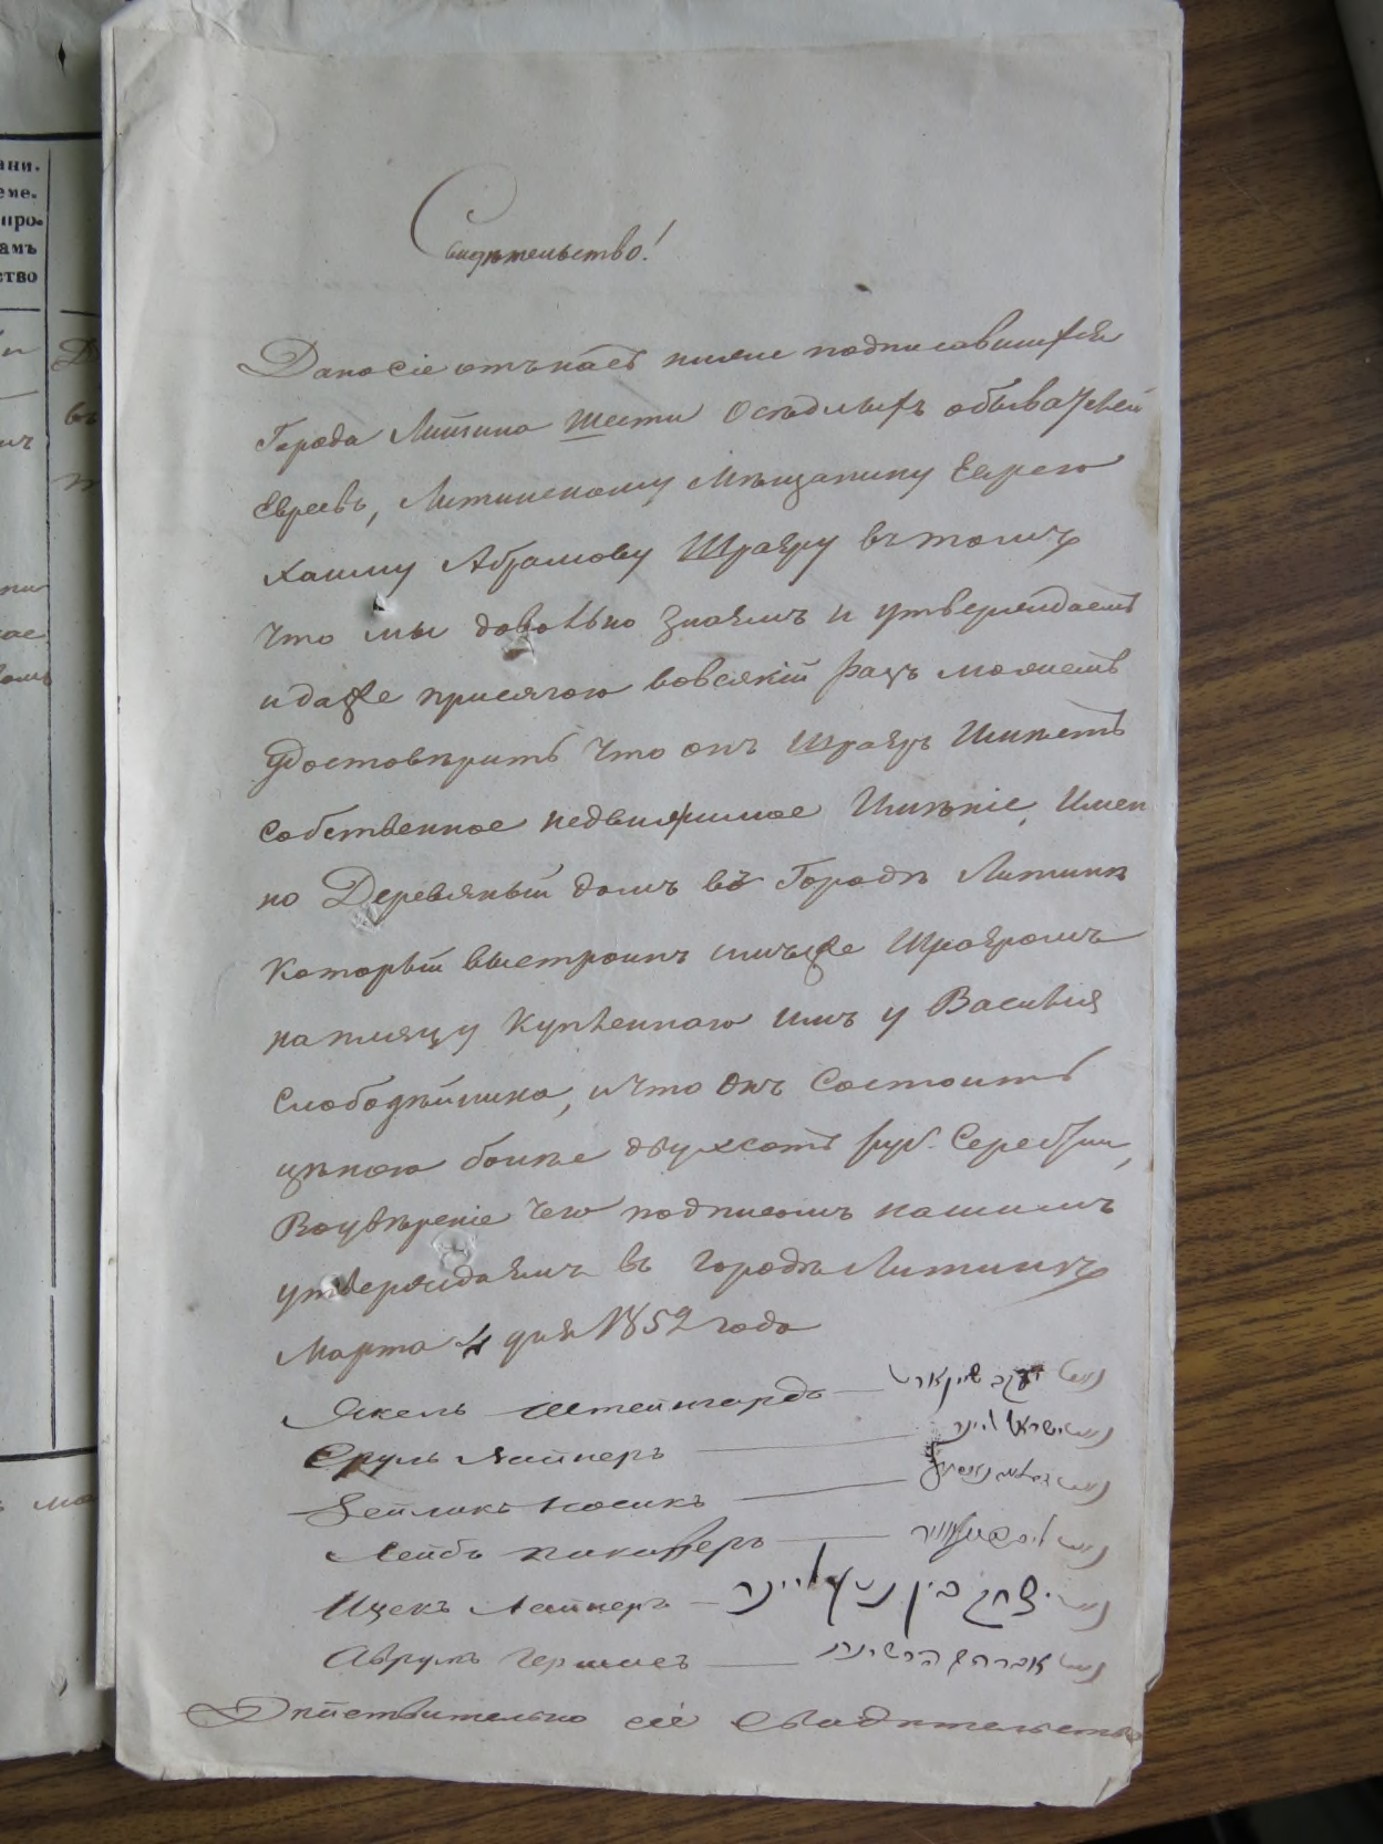 ани.
еме.
про-
амъ
ство
Свидѣтельство!
Дано сіе отъ насъ ниже подписавшихся
Города Литина Шести Осѣдлыхъ обывателей
Евреевъ, Литинскому Мѣщанину Еврею
Хаиму Абрамову Шраеру въ томъ
что мы довольно знаемъ и утверждаемъ
и даже присягою вовсякій разъ можемъ
удостовѣрить что онъ Шраеръ Имѣетъ
собственное недвижимое Имѣніе, Имен
но Деревяный домъ въ Городѣ Литинѣ
который выстроинъ имъже Шраеромъ
на пляцу купленного имъ у Василія
Слободяника, и что онъ Состоитъ
цѣною болѣе двухсотъ руб. Серебром,
Воувѣреніе чего подписомъ нашимъ
утверждаемъ въ городѣ Литинѣ
Марта 4 дня 1852 года
Якель Штейнгардъ — נאום יעקב
Сруль Лайнеръ — נאום ישראל ליינר
Зейликъ Косикъ — נאום
Лейбъ — נאום ליב
Ицекъ Лайнеръ — נאום יצחק בין נטע ליינר
Аврумъ Гершисъ — נאום אברהם
Дѣйствительно сіе Свидѣтельство